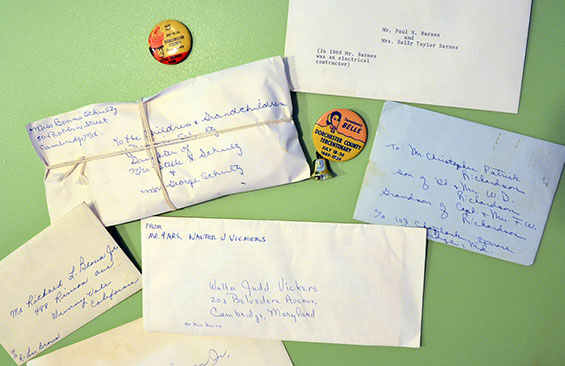 DORCHESTER
COUNTY
Mr. Paul N. Barnes
and
Mrs. Sally Taylor Barnes
(In 1969 Mr. Barnes
was an electrical
contractor)
Miss Bonnie Schultz
Street
Cambridge, Md.
To the Children & Grandchildren
Schultz
&
George Schultz
BELLE
DORCHESTER COUNTY
TERCENTENARY
JULY
1669-1969
To Mr. Christopher Patrick
Richardson
Son of Lt & Mrs. W. D.
Richardson
Grandson of Capt & Mrs. F. W.
Richardson
c/o 103
Mr. Richard L. Brown Jr.
488
Sunny Vale
California
Brown
FROM
MR. & MRS. WALTER J VICKERS
Walter Judd Vickers
203 Belvedere Avenue,
Cambridge, Maryland
or his heirs
Jr.